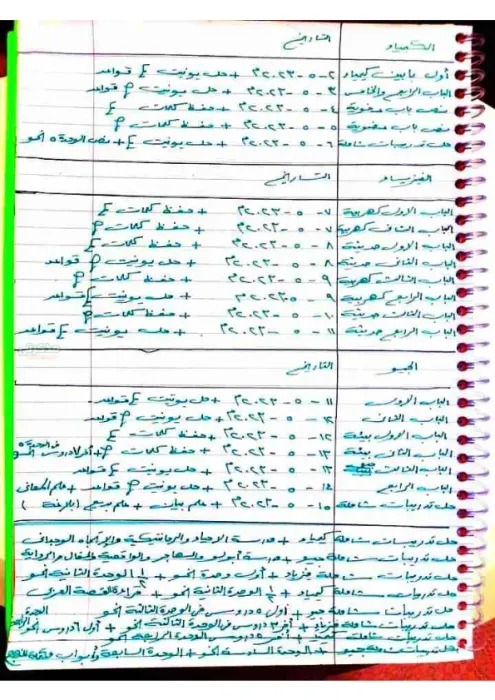 الكيمياء التاريخ
أول بابين كيمياء ٢-٥-٢٠٢٣م + حل يونيت E قواعد
الباب الرابع والخامس ٣-٥-٢٠٢٣م + حل يونيت P قواعد
نص باب عضوية ٤-٥-٢٠٢٣م + حفظ كلمات E
نص باب عضوية ٥-٥-٢٠٢٣م + حفظ كلمات P
حل تدريبات شاملة ٦-٥-٢٠٢٣م + حل يونيت E + نص الوحدة ٥ نحو
الفيزياء التاريخ
الباب الاول كهربية ٧-٥-٢٠٢٣م + حفظ كلمات E
الباب الثانى كهربية ٧-٥-٢٠٢٣م + حفظ كلمات P
الباب الاول حديثة ٨-٥-٢٠٢٣م + حفظ كلمات E
الباب الثانى حديثة ٨-٥-٢٠٢٣م + حل يونيت P قواعد
الباب الثالث كهربية ٩-٥-٢٠٢٣م + حفظ كلمات P
الباب الرابع كهربية ٩-٥-٢٠٢٣م + حل يونيت E قواعد
الباب الثالث حديثة ١٠-٥-٢٠٢٣م + حفظ كلمات P
الباب الرابع حديثة ١١-٥-٢٠٢٣م + حل يونيت E قواعد
الجيو التاريخ
الباب الاول ١١-٥-٢٠٢٣م + حل يونيت E قواعد
الباب الثانى ١٢-٥-٢٠٢٣م + حل يونيت P قواعد
الباب الاول بيئة ١٢-٥-٢٠٢٣م + حفظ كلمات E
الباب الثانى بيئة ١٣-٥-٢٠٢٣م + حفظ كلمات P
الباب الثالث ١٣-٥-٢٠٢٣م + حل يونيت E قواعد
الباب الرابع ١٤-٥-٢٠٢٣م + حل يونيت P قواعد + علم المعانى
حل تدريبات شاملة ١٥-٥-٢٠٢٣م + علم بيان + علم بديع (بلاغة)
حل تدريبات شاملة كيمياء + مدرسة الاحياء والرومانتيكية والاتجاه الوجدانى
حل تدريبات شاملة جيو + مدرسة أبوللو والمهاجر والواقعية والمقال والرواية
حل تدريبات شاملة فيزياء + أول وحدة نحو + ١/٢ الوحدة الثانية نحو
حل تدريبات شاملة كيمياء + ١/٢ الوحدة الثانية نحو + قراءة القصة
حل تدريبات شاملة جيو + أول ٥ دروس فى الوحدة الثالثة نحو
حل تدريبات شاملة فيزياء + أخر ٣ دروس فى الوحدة الثالثة نحو + أول ٦ دروس الوحدة الرابعة نحو
حل تدريبات شاملة كيمياء + أخر ٥ دروس الوحدة الرابعة نحو
حل تدريبات شاملة جيو + الوحدة السادسة نحو + الوحدة السابعة وأبواب